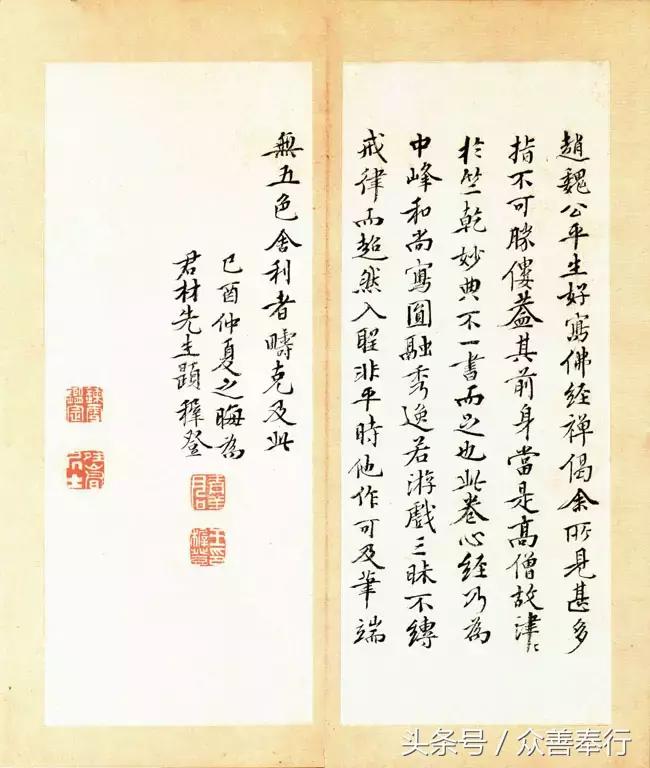 趙魏公平生好寫佛經禅偈余所見甚多
指不可勝僂蓋其前身當是高僧故津〻
於竺乾妙典不一書而足也此卷心經乃為
中峰和尚寫圓融秀逸若游戲三昧不縛
戒律而超然入聖非平時他作可及筆端
無五色舍利者疇克及此
己酉仲夏之晦為
君材先生題穉登
王印
穉登
头条号／众善奉行